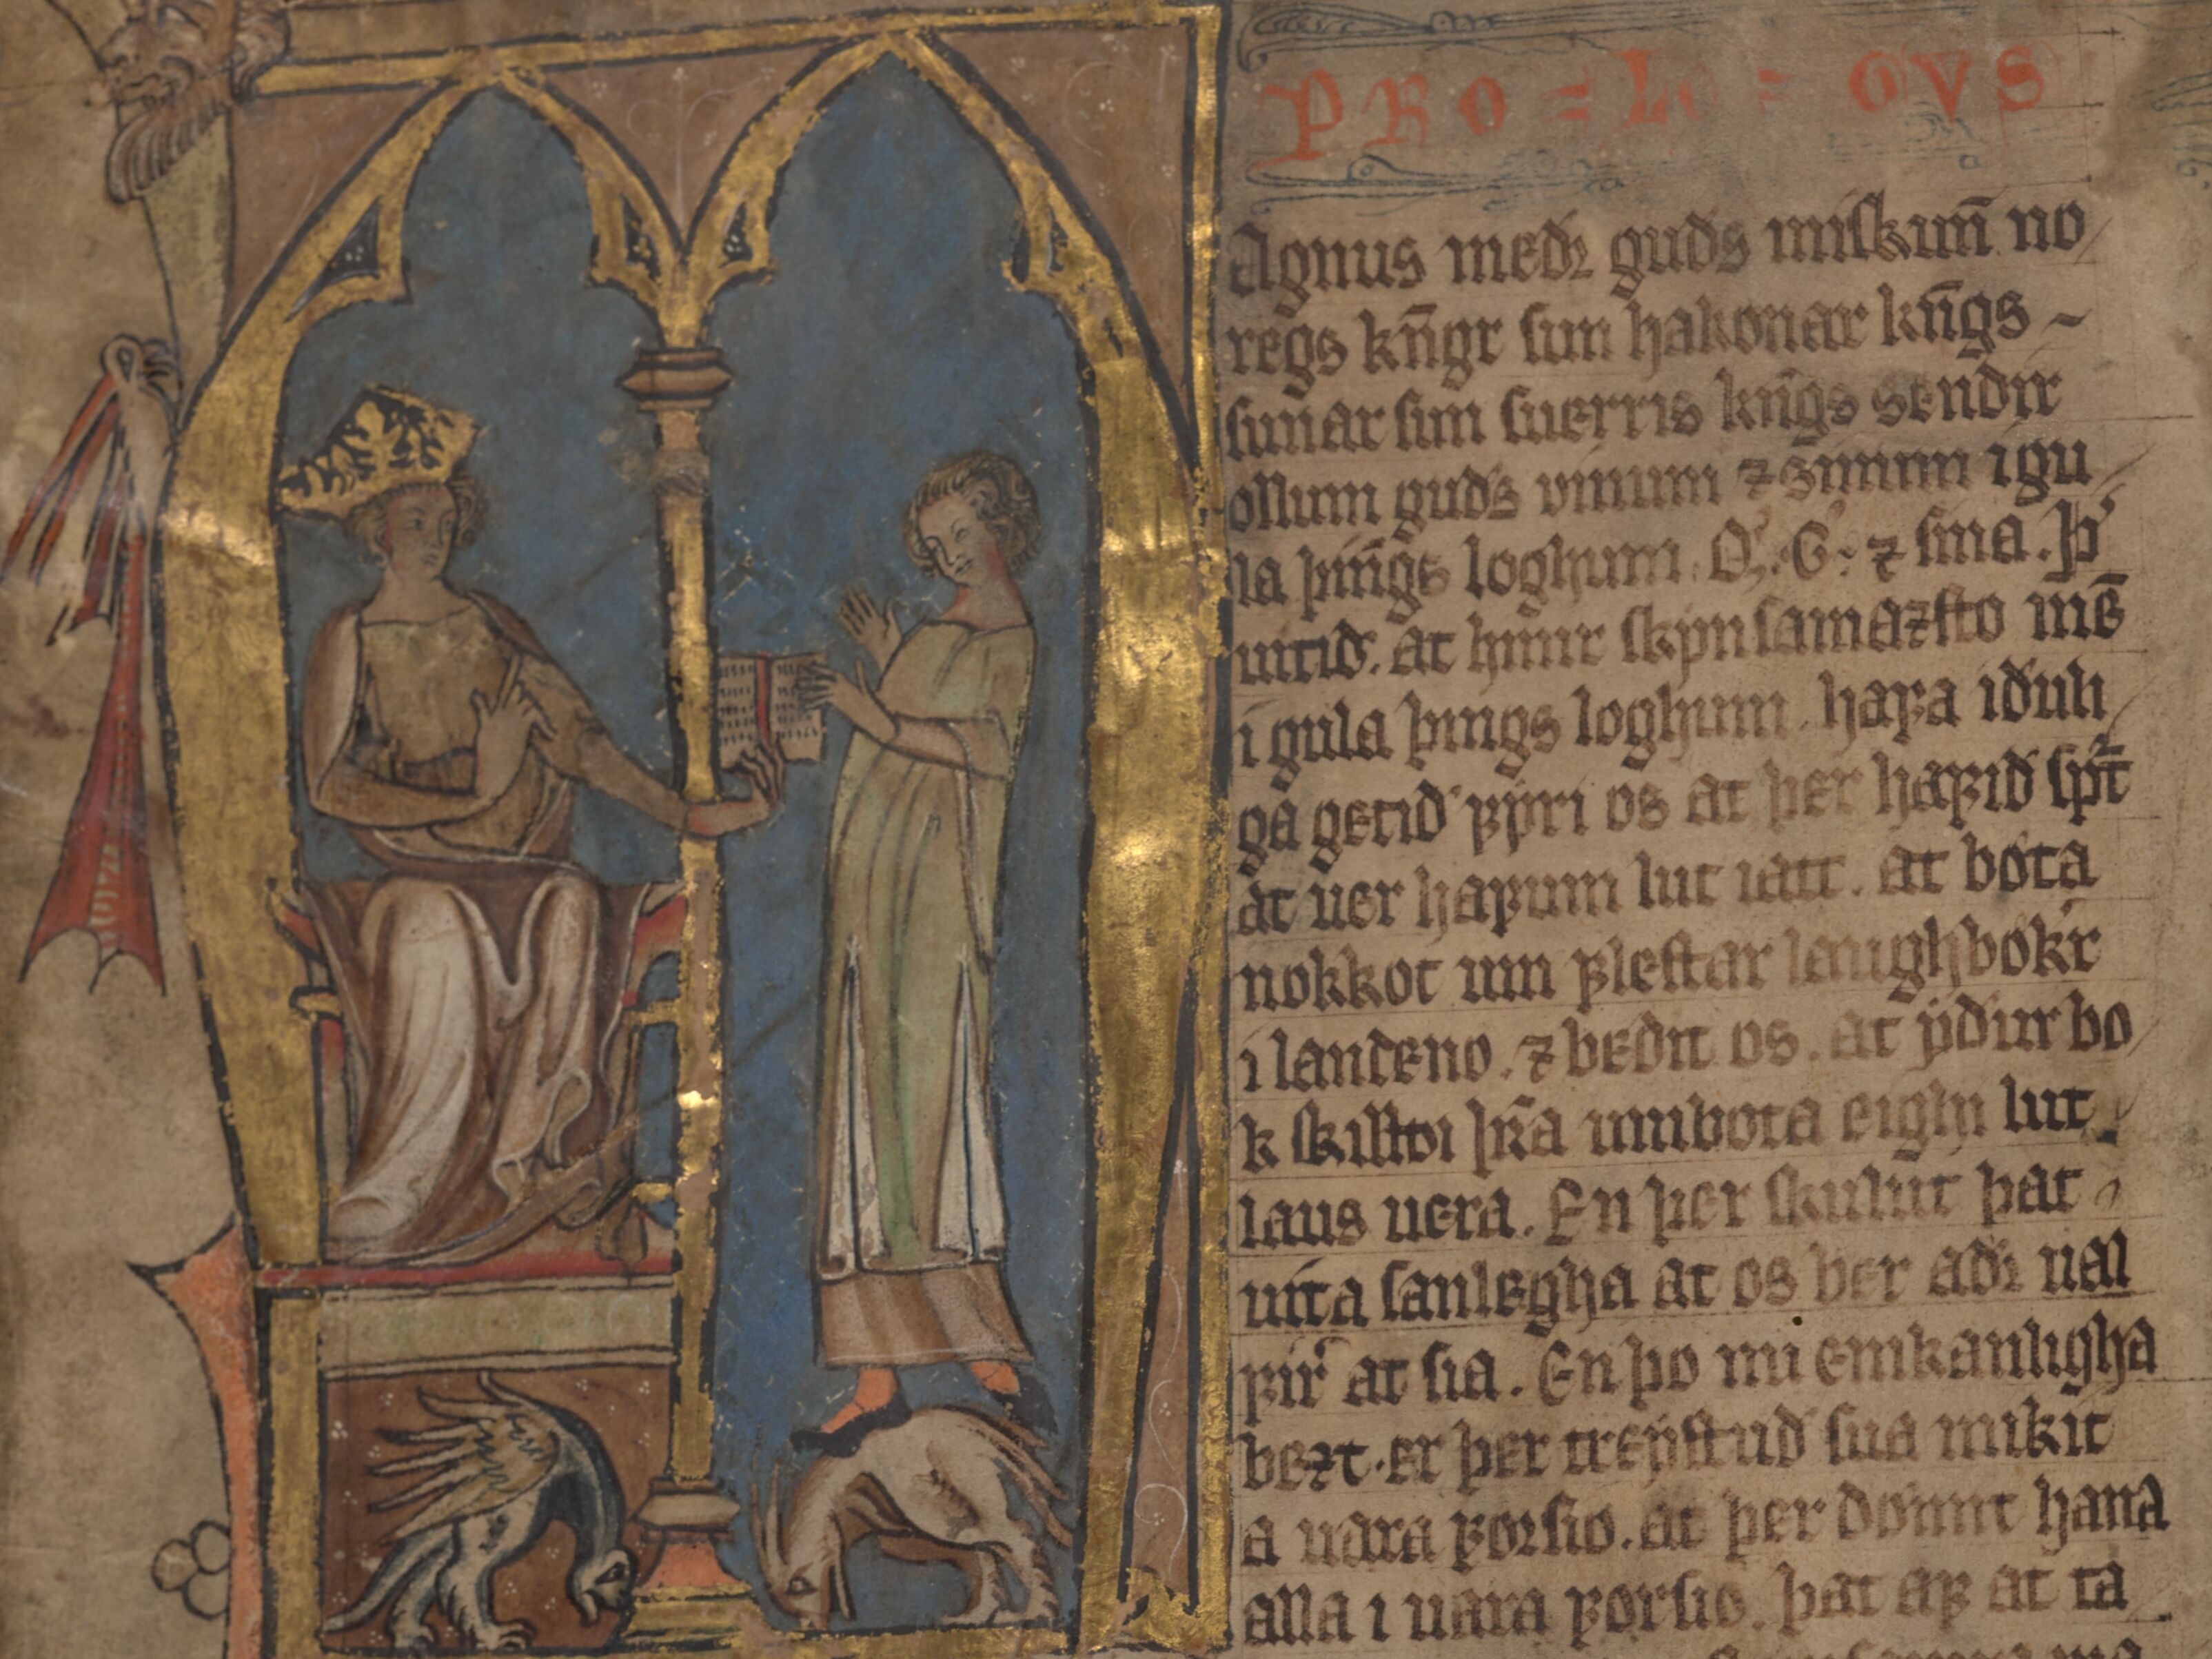 PRO=L=OGVS
Agnus medr guds miskun̄ no
regs kn̄gr sun hakonar kn̄gs ~
sunar sun suerris kn̄gs sendir
ollum guds vinum ⁊ sinum i gu
la þin̄gs loghum. Q. G. ⁊ sina. þ̓
uitid. at hinir skynsamaꝛsto men̄
i gula þings loghum. hafa iduli
ga getid fyri os at þer hafid spt̄
at uer hafum lut iatt. at bøta
nokkot um flestar laughbøkr
i landeno. ⁊ bedit os. at ydur bo
k skilldi h̄ra umbota eighi lut
laus uera. En þer skulut þat
uita sanlegha at os ber adr nal
fir at sia. En þo nu einkanligha
beꝛt. er þer treystud sua mikit
a uara forsio. at þer dømit hana
alla i uara forsio. þat af at ta